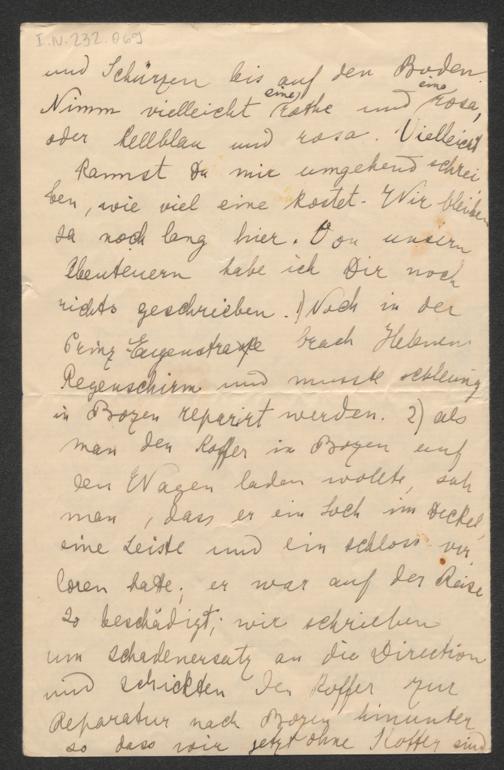 I.N. 232.069
und Schürzen bis auf den Boden.
Nimm vielleicht eine rothe und eine rosa,
oder hellblau und rosa. Vielleicht
kannst Du mir umgehend schrei
ben, wie viel eine kostet. Wir bleiben
ja noch lang hier. Von unsern
Abenteuern habe ich Dir noch
nichts geschrieben. 1) Noch in der
Prinz Eugenstraße brach Helenens
Regenschirm und musste schleunig
in Bozen reparirt werden. 2) als
man den Koffer in Bozen auf
den Wagen laden wollte, sah
man, dass er ein Loch im Deckel,
eine Leiste und ein schloss ver
loren hatte; er war auf der Reise
so beschädigt; wir schrieben
um schadenersatz an die Direction
und schickten den Koffer zur
Reparatur nach Bozen hinunter
so dass wir jetzt ohne Koffer sind